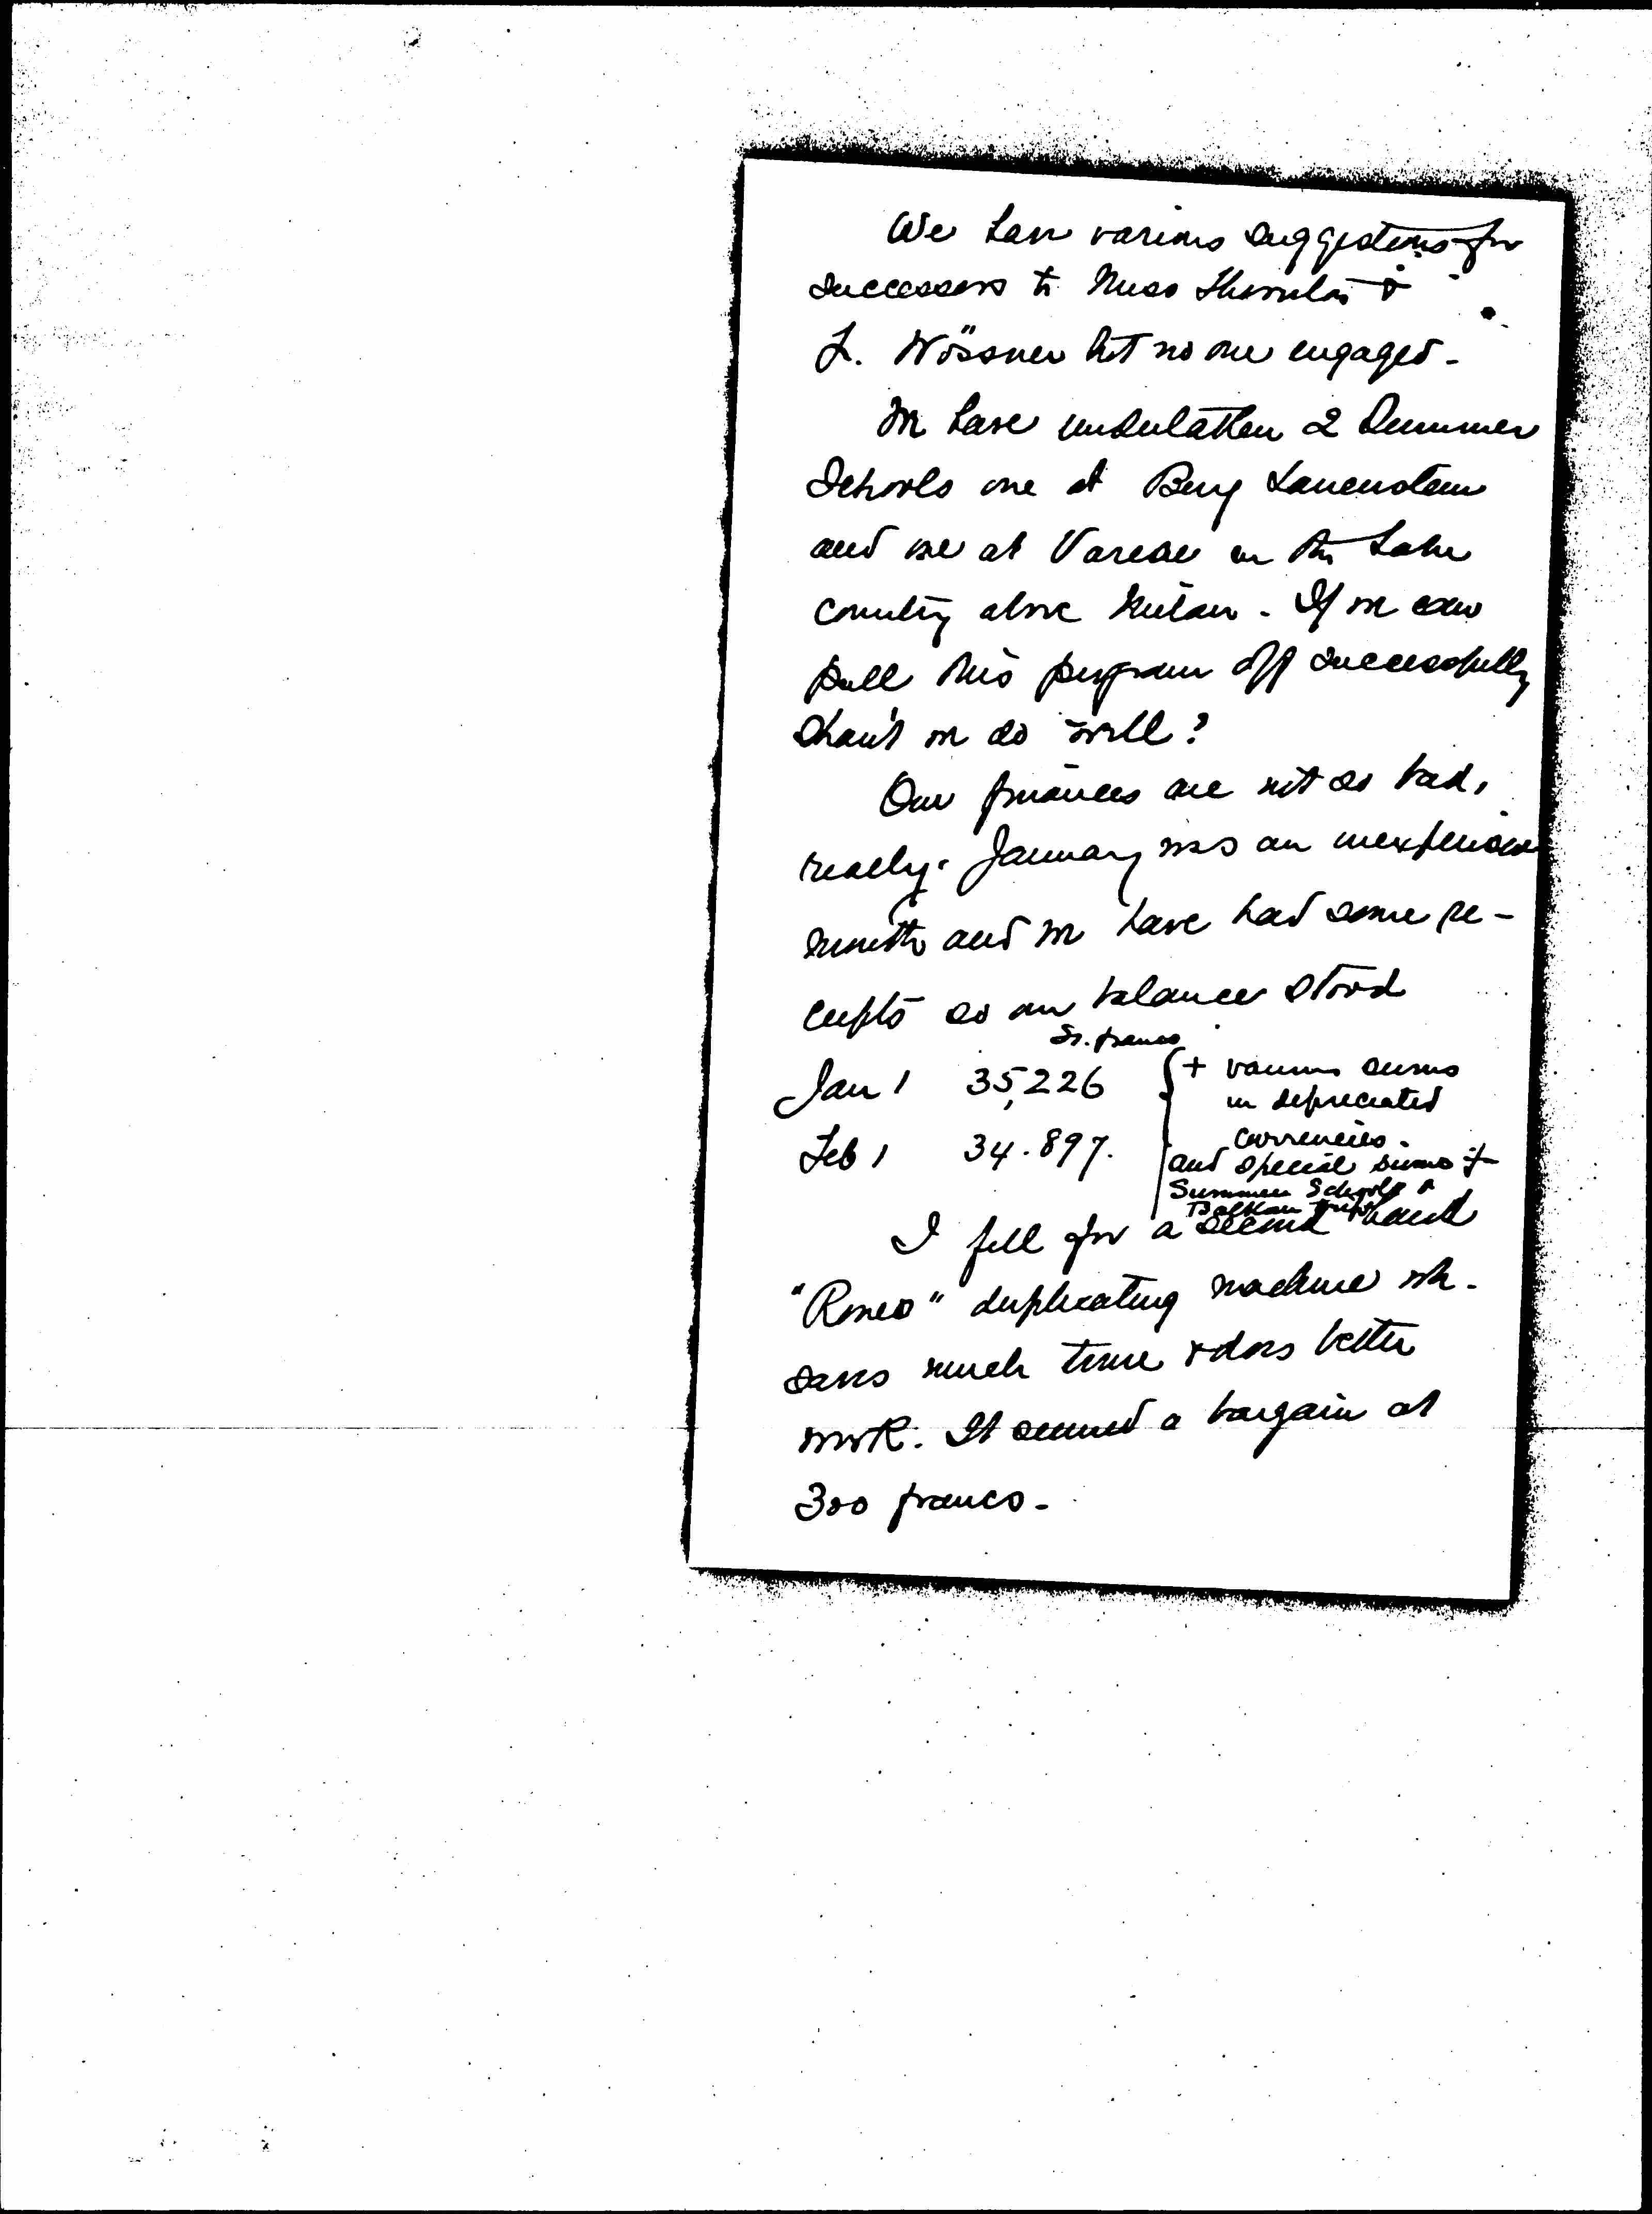 We have various suggestions for
successors to Miss
L. Wössner but no one engaged -
We have undertaken 2 Summer
Schools one at Burg Lauenstein
and one at Varese in the Lake
country above Milan - If we can
pull this program off successfully
shan't we do well?
Our finances are not so bad,
really. January was an inexpensive
month and we have had some re-
ceipts so our balance stood
Sr. francs
Jan 1 35,226 { + various sums
in depreciated
Feb 1 34.897. currencies -
and special sums for
Summer Schools &
Balkan trip
I fell for a second hand
"Roneo" duplicating machine wh.
saves much time & does better
work. It seemed a bargain at
300 francs -